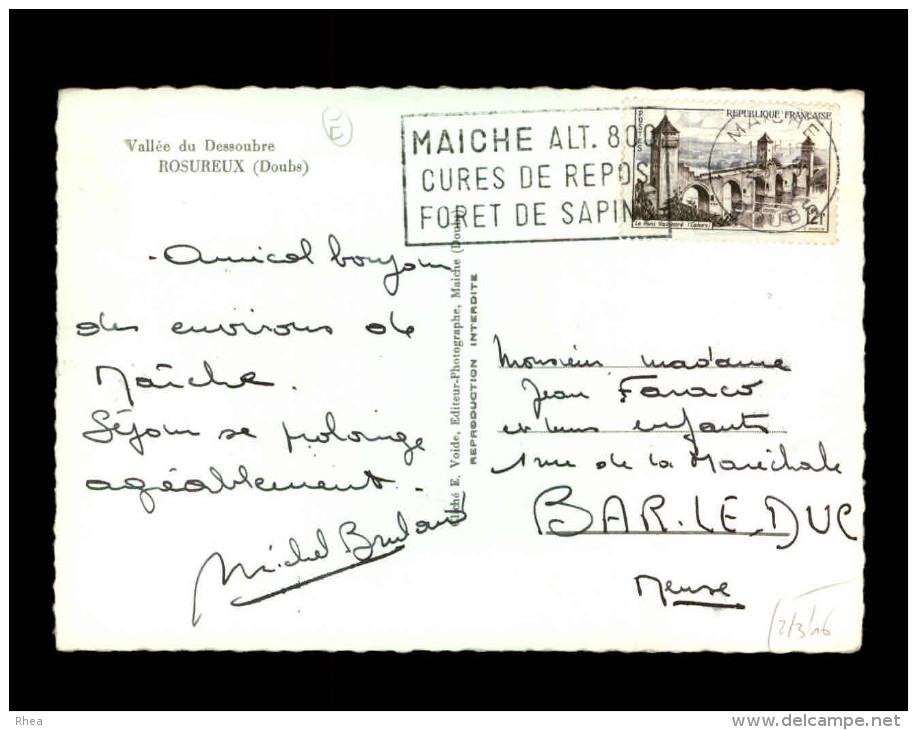 Vallée du Dessoubre
ROSUREUX (Doubs)
E
MAICHE ALT. 800
CURES DE REPOS
FORET DE SAPIN
POSTES
REPUBLIQUE FRANÇAISE
Le Pont Valentré (Cahors)
12f
MAICHE
DOUBS
- Amical bonjour
des environs de
Maîche.
Séjour se prolonge
agréablement.
Michel
Cliché E. Voide, Editeur-Photographe, Maiche (Doubs)
REPRODUCTION INTERDITE
Monsieur, madame
Jean Faraco
et leurs enfants
1 rue de la Maréchale
BAR.LE.DUC
Meuse
Rhea
www.delcampe.net